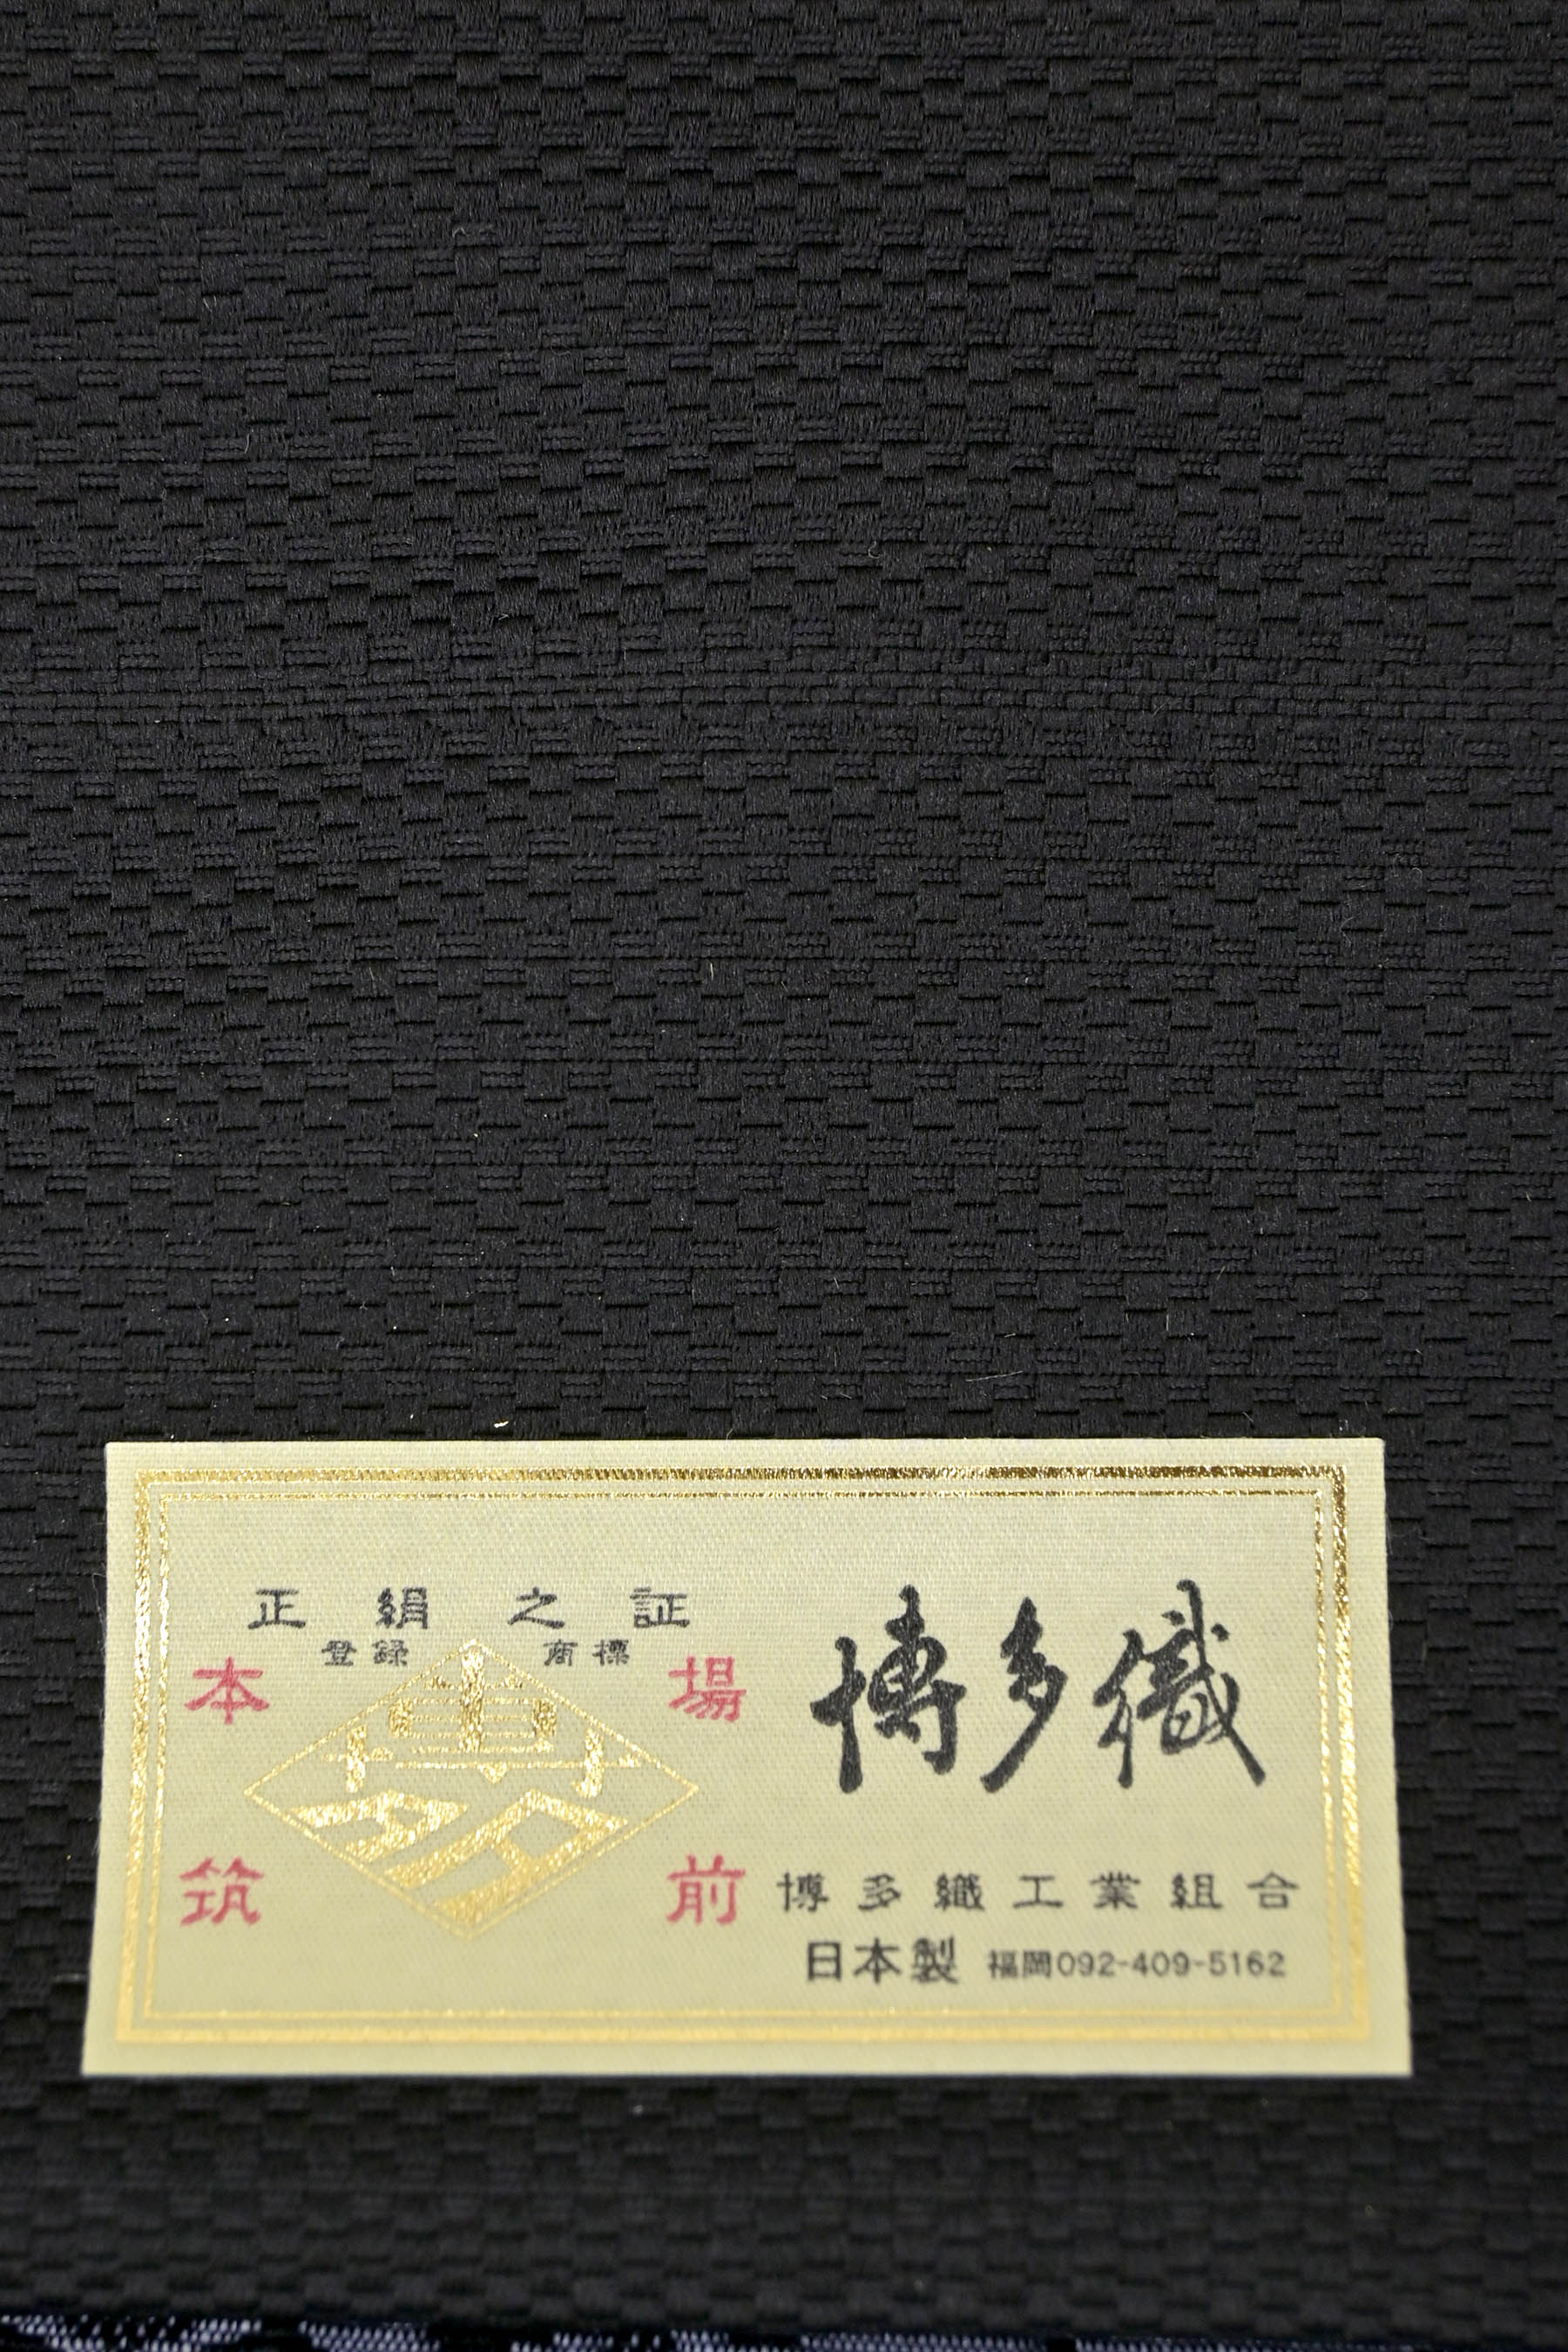 正絹之証
登録 商標
本場
筑前
博多織
博多織工業組合
日本製 福岡092-409-5162